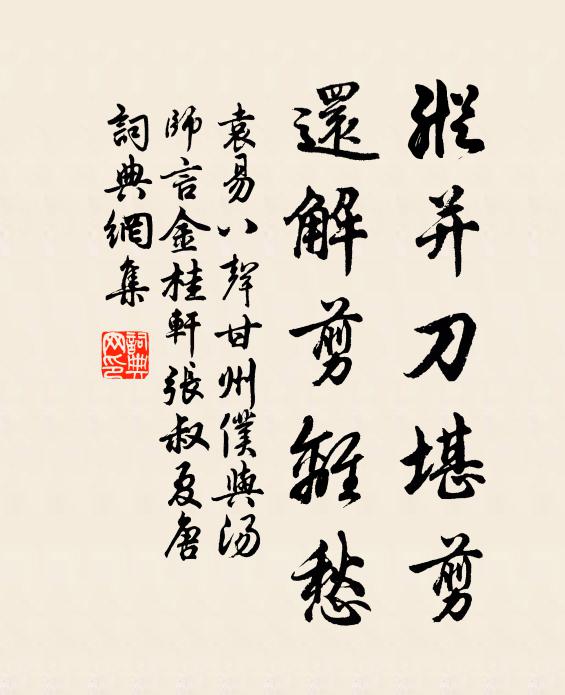 縱并刀堪剪
還解剪離愁
袁易八聲甘州僕與湯
師言金桂軒張叔夏唐
詞典網集
詞典網印